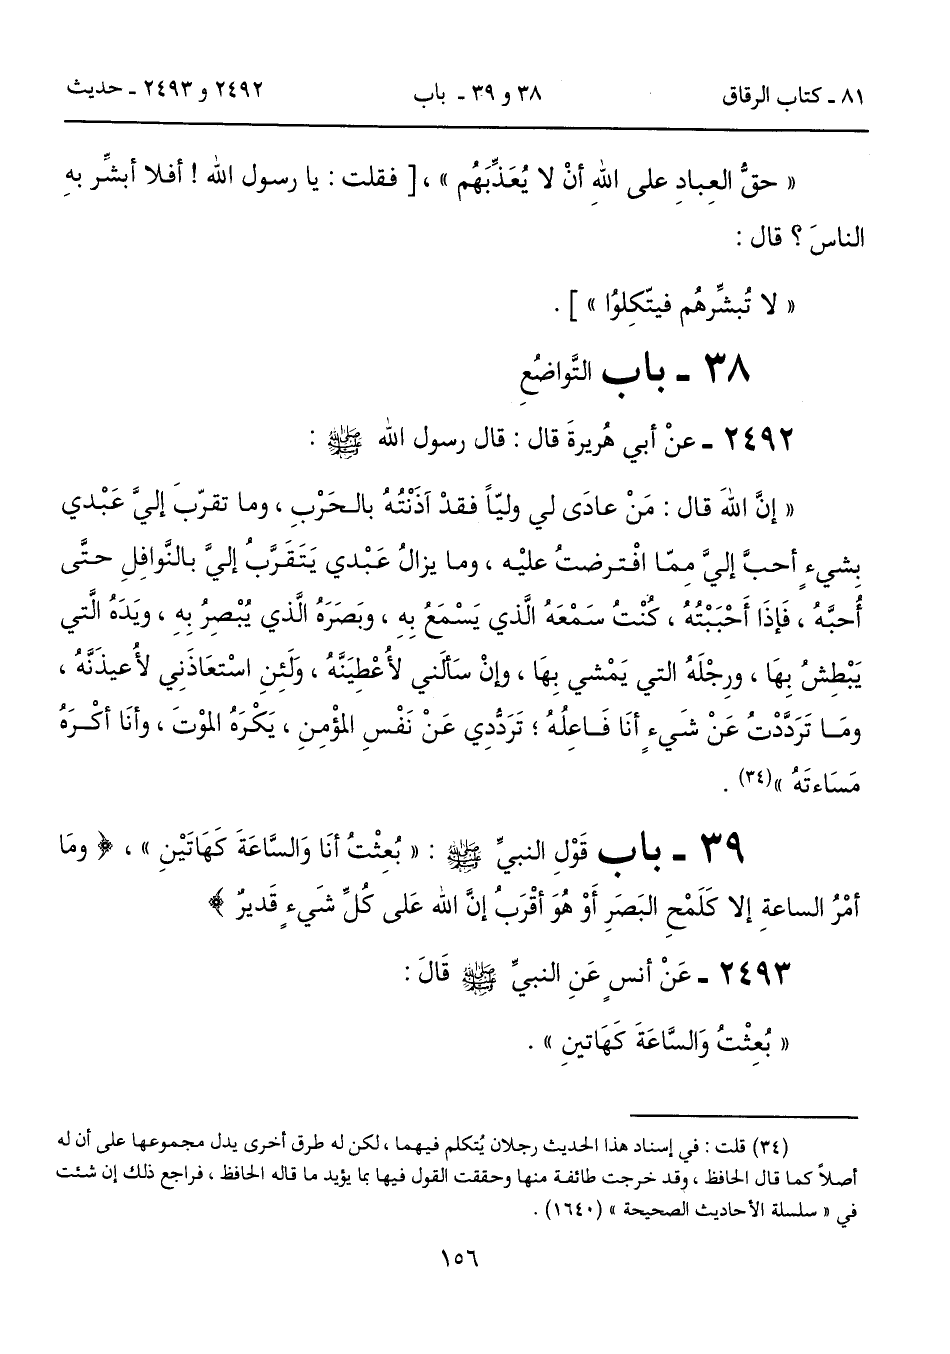 ٨١ ـ كتاب الرقاق ٣٨ و ٣٩ ـ باب ٢٤٩٢ و ٢٤٩٣ ـ حديث
« حقُّ العِبادِ على اللهِ أنْ لا يُعَذِّبَهُم » ، [ فقلت : يا رسول الله ! أفلا أبشِّر بهِ
الناسَ ؟ قال :
« لا تُبشِّرهُم فيتّكِلوُا » ] .
٣٨ ـ باب التَّواضُعِ
٢٤٩٢ ـ عنْ أبي هُريرةَ قال : قال رسول الله ﷺ :
« إنَّ اللهَ قال : مَنْ عادَى لي وليّاً فقدْ آذَنْتُهُ بالحَرْبِ ، وما تقرّبَ إليَّ عَبْدي
بِشيءٍ أحبَّ إليَّ مِمّا افْترضتُ عليْه ، وما يزالُ عَبْدي يَتَقَرَّبُ إليَّ بالنَّوافِلِ حتَّى
أُحبَّهُ ، فَإذَا أَحْبَبْتُهُ ، كُنْتُ سَمْعَهُ الَّذي يَسْمَعُ بِهِ ، وبَصَرَهُ الَّذي يُبْصِرُ بِهِ ، ويَدَهُ الَّتي
يَبْطِشُ بِهَا ، ورِجْلَهُ التي يَمْشي بِهَا ، وإنْ سَألَني لأُعْطِيَنَّهُ ، وَلَئِنِ اسْتعَاذَني لأُعيذَنَّهُ ،
ومَا تَرَدَّدْتُ عَنْ شَيءٍ أنَا فَاعِلُهُ ؛ تَرَدُّدي عَنْ نَفْسِ المُؤمِنِ ، يَكْرَهُ الموْتَ ، وأنَا أكْرَهُ
مَسَاءتَهُ »(٣٤) .
٣٩ ـ باب قَوْلِ النبيِّ ﷺ : « بُعِثْتُ أنَا وَالسَّاعَةَ كَهَاتَيْنِ » ، ﴿ ومَا
أمْرُ الساعةِ إلا كَلَمْحِ البَصَرِ أَوْ هُوَ أقْرَبُ إنَّ الله عَلى كُلِّ شَيءٍ قَديرٌ ﴾
٢٤٩٣ ـ عَنْ أنسٍ عَنِ النبيِّ ﷺ قَالَ :
« بُعِثْتُ وَالسَّاعَةَ كَهَاتينِ » .
(٣٤) قلت : في إسناد هذا الحديث رجلان يُتكلم فيهما ، لكن له طرق أخرى يدل مجموعها على أن له
أصلاً كما قال الحافظ ، وقد خرجت طائفة منها وحققت القول فيها بما يؤيد ما قاله الحافظ ، فراجع ذلك إن شئت
في « سلسلة الأحاديث الصحيحة » (١٦٤٠) .
١٥٦